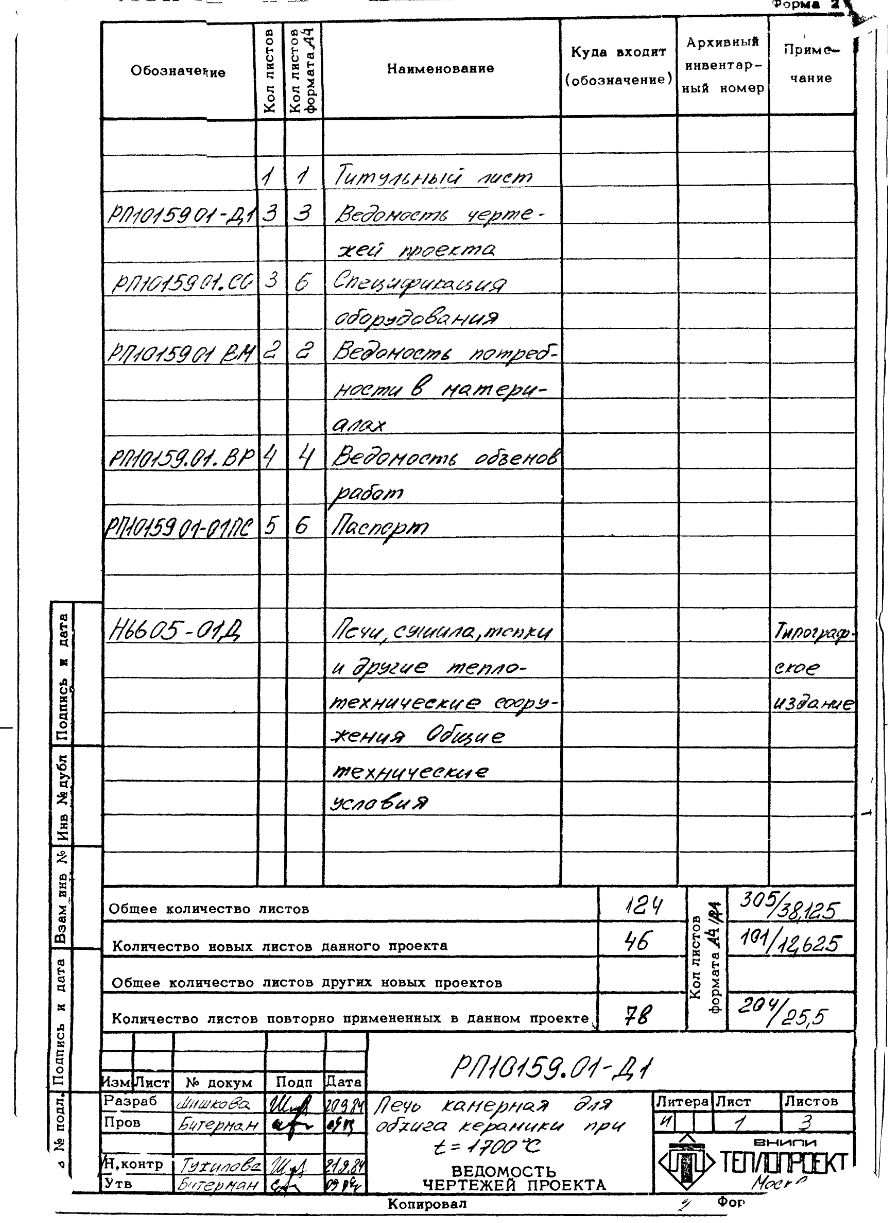 Форма 2
Обозначение Кол листов Кол листов формата А4 Наименование Куда входит (обозначение) Архивный инвентарный номер Примечание
1 1 Титульный лист
РП10159.01-Д1 3 3 Ведомость черте-
жей проекта
РП10159.01.СО 3 6 Спецификация
оборудования
РП10159.01 ВМ 2 2 Ведомость потреб-
ности в матери-
алах
РП10159.01.ВР 4 4 Ведомость объемов
работ
РП10159.01-01ПС 5 6 Паспорт
Н6605-01Д Печи, сушила, топки Типограф-
и другие тепло- ское
технические соору- издание
жения Общие
технические
условия
Подпись и дата
Инв № дубл
Взам инв №
Подпись и дата
№ подл.
Общее количество листов 124 305/38,125
Количество новых листов данного проекта 46 101/12,625
Общее количество листов других новых проектов
Количество листов повторно примененных в данном проекте 78 204/25,5
Кол листов
формата А4/А1
РП10159.01-Д1
Изм Лист № докум Подп Дата
Разраб Шишкова 20.9.84
Пров Битерман
Н.контр Тухилова 21.9.84
Утв Битерман
Печь камерная для
обжига керамики при
t=1700°С
ВЕДОМОСТЬ
ЧЕРТЕЖЕЙ ПРОЕКТА
Литера Лист Листов
И 1 3
ВНИПИ
ТЕПЛОПРОЕКТ
Копировал